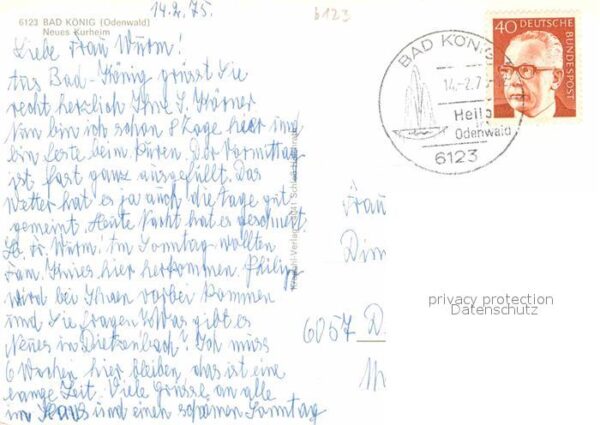 14.2.75.
6123
6123 BAD KÖNIG (Odenwald)
Neues Kurheim
Liebe Frau Wurm!
Aus Bad-König grüsst Sie
recht herzlich Ihre S. Körner
Nun bin ich schon 8 Tage hier und
bin feste beim Kuren. Der Vormittag
ist fast ganz ausgefüllt. Das
Wetter hat es ja auch die Tage gut
gemeint. Heute Nacht hat es geschneit.
Lb. Fr. Wurm! Am Sonntag wollten
Fam. hier herkommen. Philipp
wird bei Ihnen vorbei kommen
und Sie fragen. Was gibt es
Neues in Dietzenbach? Ich muss
6 Wochen hier bleiben, das ist eine
lange Zeit. Viele Grüsse an alle
im Haus und einen schönen Sonntag
BAD KÖNIG
14.-2.7
Heilb
in
Odenwald
6123
40 DEUTSCHE
BUNDESPOST
Frau
6057 D
privacy protection
Datenschutz